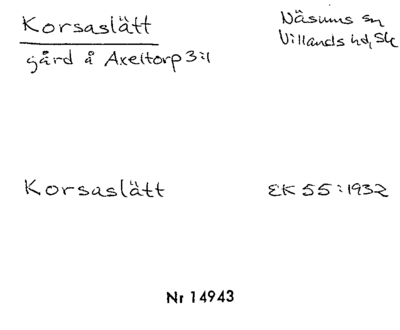 Korsaslätt
Näsums sn
Villands hd, Sk
gård å Axeltorp 3:1
Korsaslätt
EK 55:1932
Nr 14943